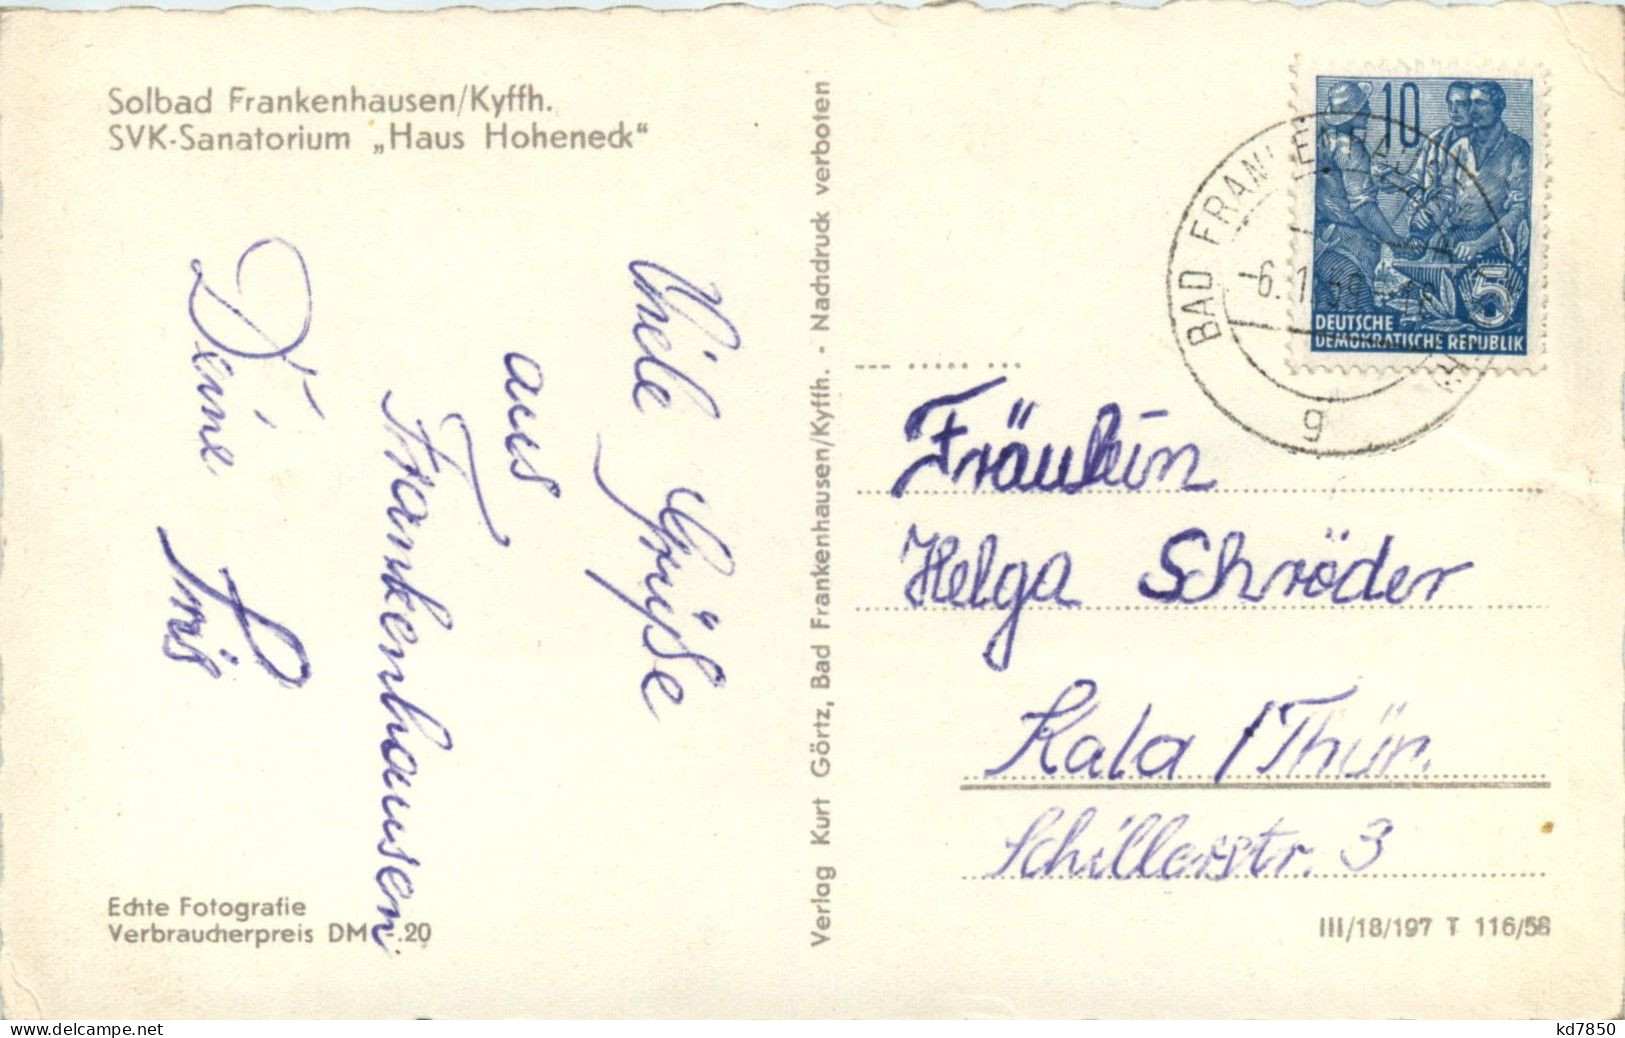 Solbad Frankenhausen/Kyffh.
SVK-Sanatorium „Haus Hoheneck“
Viele Grüße
aus
Frankenhausen
Deine
Iris
Echte Fotografie
Verbraucherpreis DM -.20
Verlag Kurt Görtz, Bad Frankenhausen/Kyffh. · Nachdruck verboten
10
5
DEUTSCHE
DEMOKRATISCHE REPUBLIK
BAD FRANKENHAUSEN
-6.1.59
g
Fräulein
Helga Schröder
Kala /Thür.
Schillerstr. 3
III/18/197 T 116/56
www.delcampe.net
kd7850